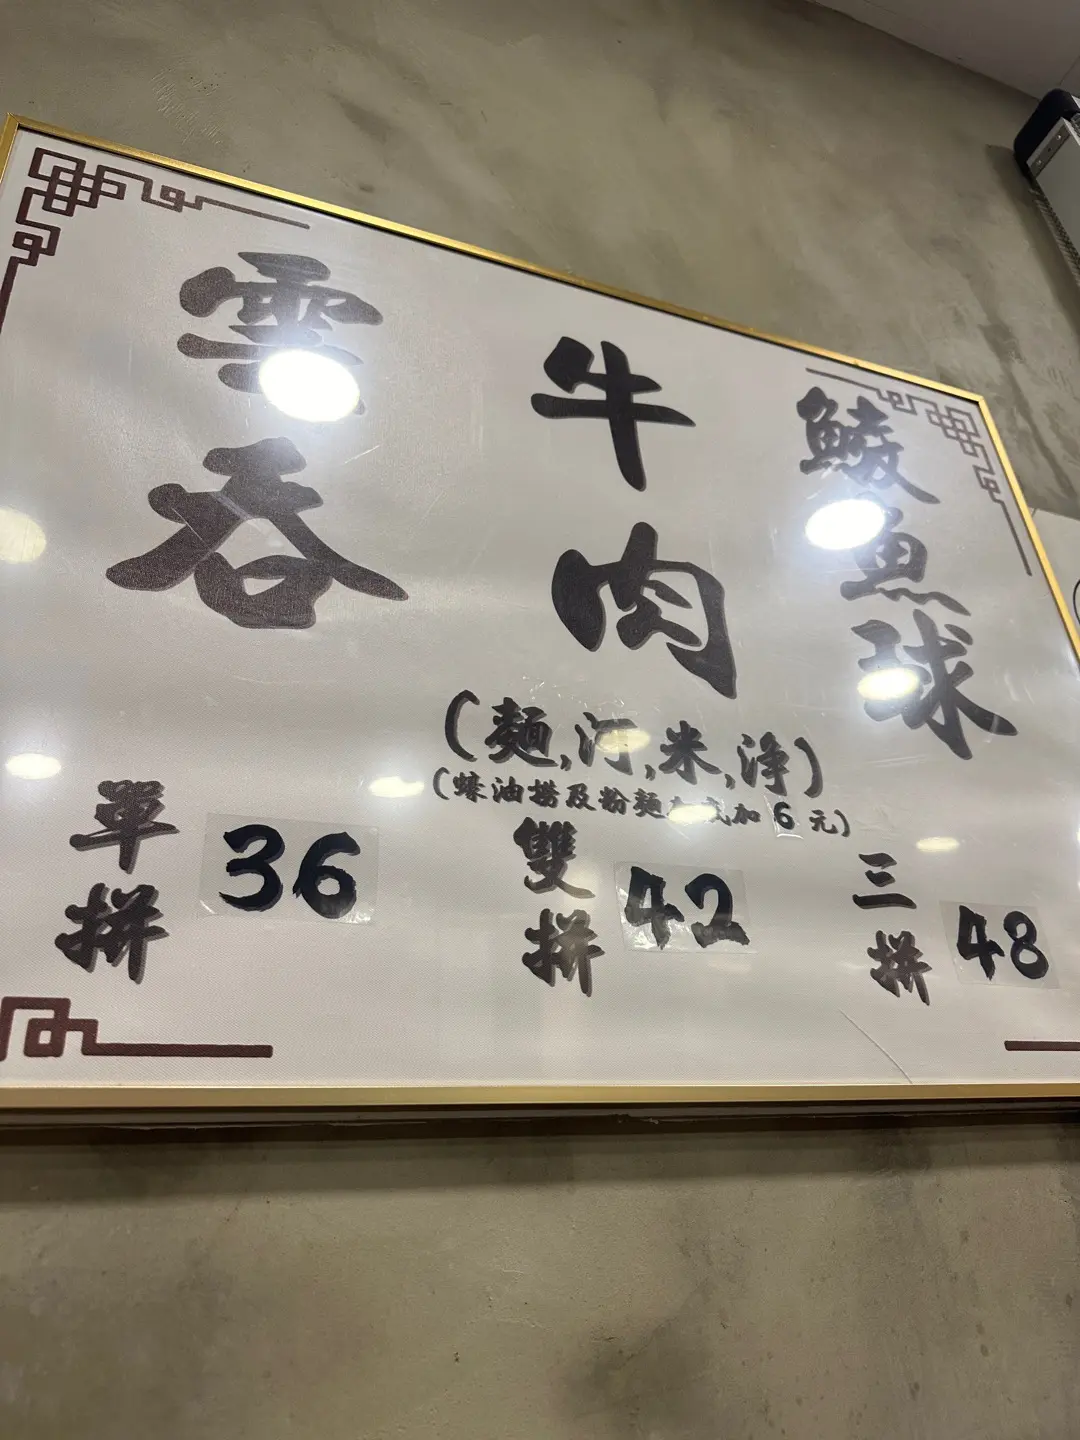 雲吞
牛肉
鯪魚球
(麵,河,米,淨)
(蠔油撈及粉麵 加 6 元)
單拼 36
雙拼 42
三拼 48